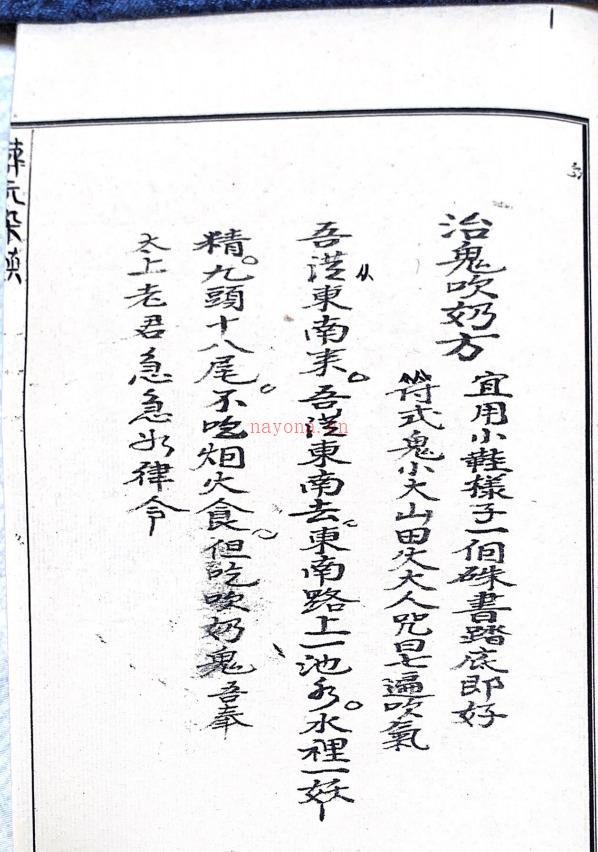 治鬼吹奶方
宜用小鞋樣子一個硃書踏底即好
符式鬼小大山田火大人咒曰七遍吹氣
吾從東南来。吾從東南去。東南路上一池水。水裡一妖
精。九頭十八尾。不吃烟火食。但吃吹奶鬼吾奉
太上老君急急如律令
nayona.cn